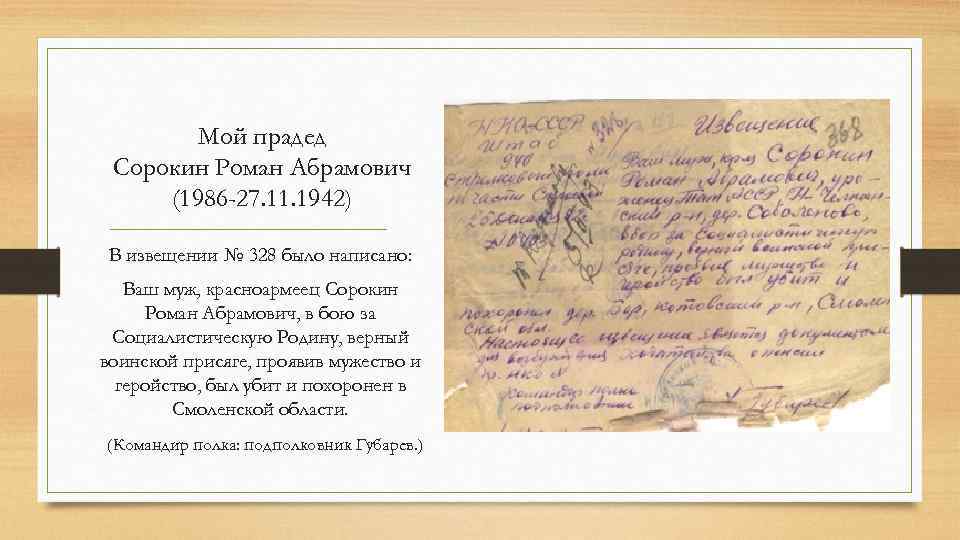 Мой прадед
Сорокин Роман Абрамович
(1986 -27. 11. 1942)
В извещении № 328 было написано:
Ваш муж, красноармеец Сорокин
Роман Абрамович, в бою за
Социалистическую Родину, верный
воинской присяге, проявив мужество и
геройство, был убит и похоронен в
Смоленской области.
(Командир полка: подполковник Губарев.)
НКО-СССР
Штаб
Извещение
Ваш муж, Сорокин
Роман Абрамович, уро-
женец Тат АССР Н-Челнин-
ский р-н, дер.
в бою за Социалистическую
родину, верный воинской при-
сяге, проявив мужество и
геройство был убит и
похоронен дер. Бор, р-н, Смолен
ской обл.
Настоящее извещение является документом
для возбуждения ходатайства о пенсии
командир полка
подполковник Губарев